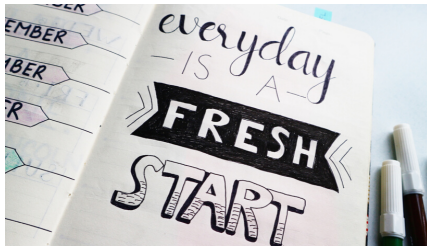 EMBER
EMBER
BER
R
everyday
IS
A
FRESH
START